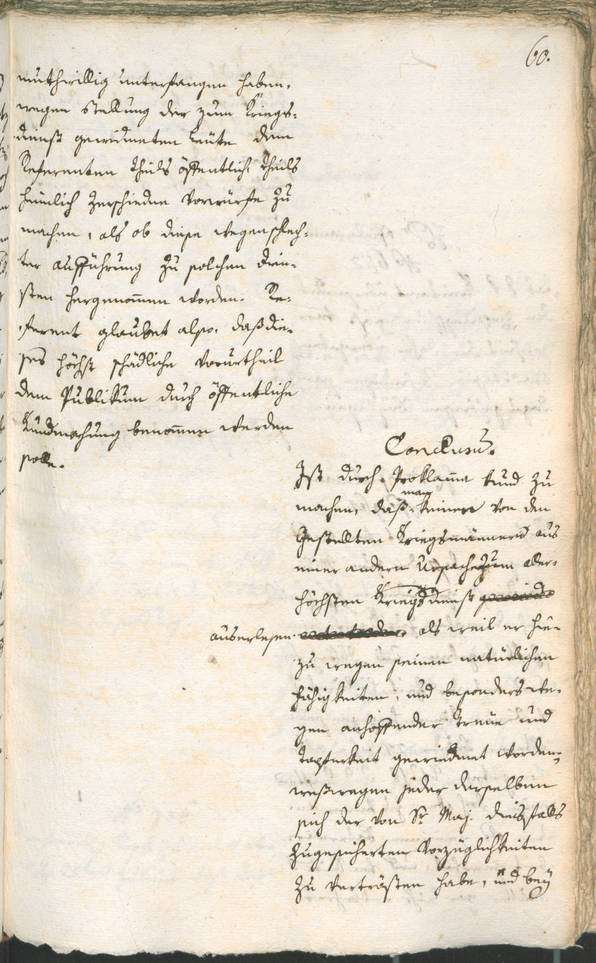 60.
muthwillig unterfangen haben,
wegen Stellung der zum Kriegs-
dienst gewidmeten Leute dem
Referenten theils öffentlich theils
heimlich verschiedene Vorwürfe zu
machen, als ob diese wegen schlech-
ter aufführung zu solchen dien-
sten hergenommen worden. Re-
ferent glaubet also, daß die-
ses höchst schädliche Vorurtheil
dem Publikum durch öffentliche
Kundmachung benommen werden
solle.
Conclusū.
Ist durch Proklama kund zu
machen, daß keiner von den
Gestellten Kriegsmännern aus
einer andern Ursache zum aller-
höchsten Kriegsdienst
auserlesen als weil er hie-
zu wegen seinen natürlichen
fähigkeiten, und besonders we-
gen anhoffender Treue und
Tapferkeit gewidmet worden,
weßwegen jeder derselben
sich der von Sr Maj. diesfalls
zugesicherten Vorzüglichkeiten
zu vertrösten habe, und bey